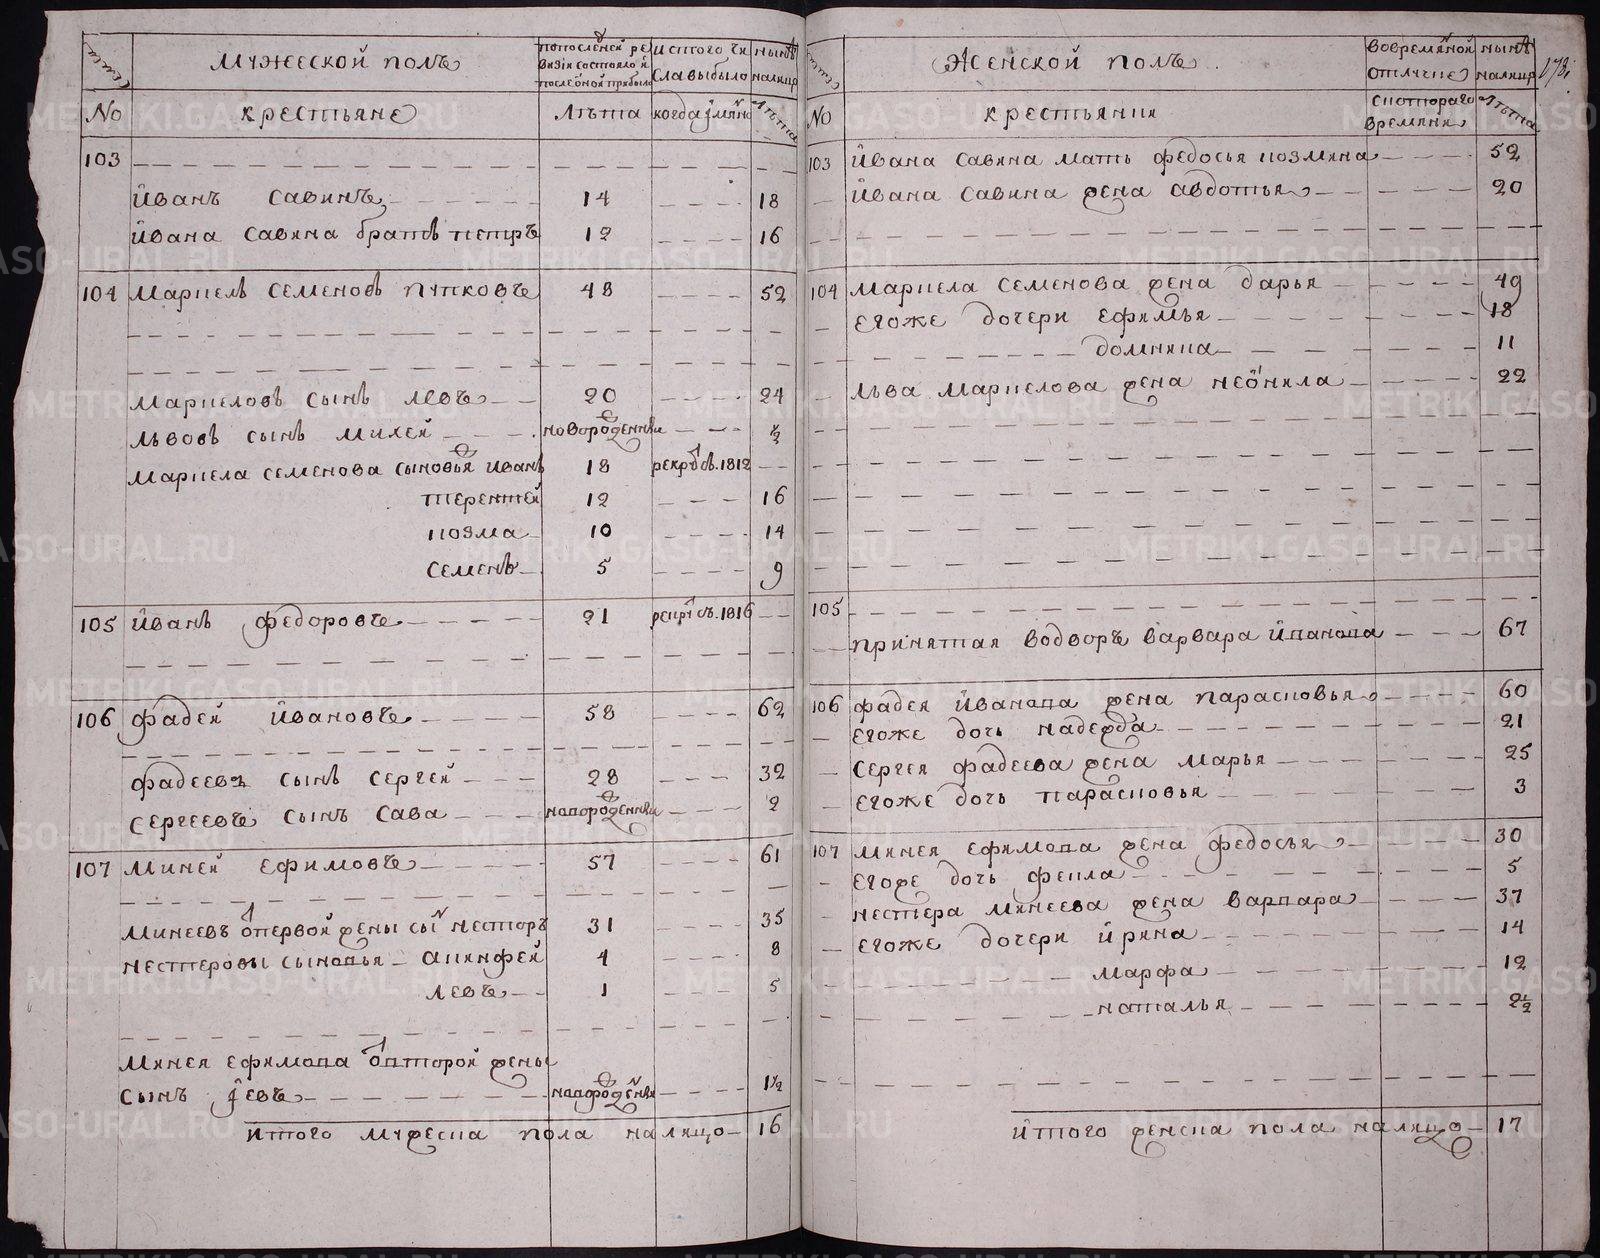 Семьи
Мужеской полъ
По последней ревизіи состояло и после оной прибыло
Исъ того числа выбыло
Ныне налицо
No
крестьяне
Лѣта
когда имянно
Лѣта
103
Иванъ Савинъ 14 18
Ивана Савина братъ петръ 12 16
104 Маркелъ Семеновъ пупковъ 48 52
Маркеловъ сынъ левъ 20 24
львовъ сынъ михей новорожденный ½
Маркела семенова сыновья иванъ 18 рекрутъ 1812
терентей 12 16
козма 10 14
семенъ 5 9
105 Иванъ федоровъ 21 рекрутъ 1816
106 фадей Ивановъ 58 62
фадеевъ сынъ сергей 28 32
сергеевъ сынъ сава новорожденный 2
107 Миней ефимовъ 57 61
Минеевъ от первой жены сынъ несторъ 31 35
нестеровы сыновья акинфей 4 8
левъ 1 5
Минея ефимова от второй жены
сынъ Iевъ новорожденный 1½
Итого мужеска пола на лицо 16
Семьи
Женской полъ
Во временной отлучке
Ныне налицо
178
No
крестьянки
с котораго времяни
Лѣта
103 Ивана савина мать федосья козмина 52
Ивана савина жена авдотья 20
104 Маркела семенова жена дарья 49
егоже дочери ефимья 18
домника 11
льва маркелова жена неонила 22
105
принятая водворъ варвара иванова 67
106 фадея Иванова жена парасковья 60
егоже дочь надежда 21
сергея фадеева жена марья 25
егоже дочь парасковья 3
107 Минея ефимова жена федосья 30
егоже дочь фекла 5
нестера минеева жена варвара 37
егоже дочери ирина 14
марфа 12
наталья 2½
Итого женска пола на лицо 17
METRIKI.GASO-URAL.RU